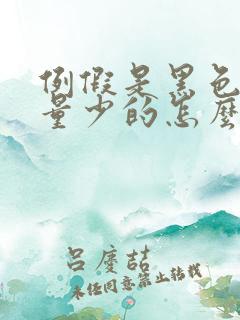 例假是黑色
量少的怎么
吕庆喆
未经同意禁止转载